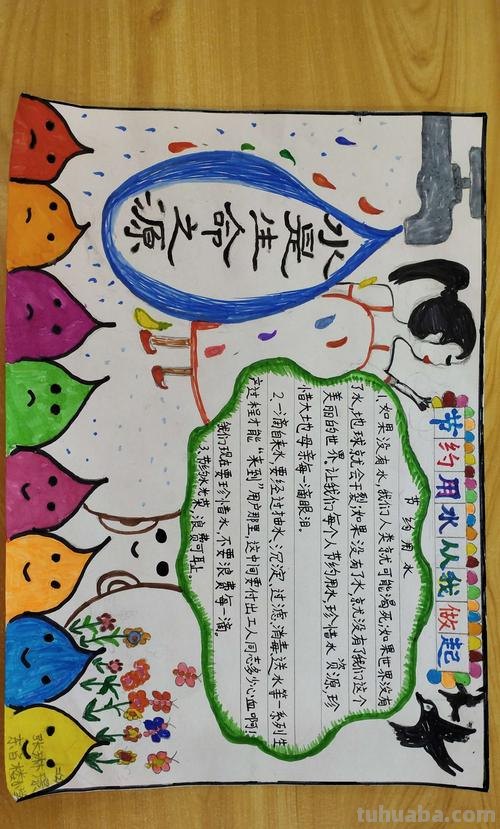 节约用水从我做起
水是生命之源
节约用水
1.如果没有水,我们人类就可能渴死;如果世界没有
了水,地球就会干裂;如果没有了水,就没有了我们这个
美丽的世界。让我们每个人节约用水,珍惜水资源,珍
惜大地母亲每一滴眼泪。
2.一滴自来水要经过抽水、沉淀、过滤、消毒、洗水等一系列生
产过程才能“来到”用户那里,这中间要付出工人同志多少心血啊!
我们现在要珍惜水,不要浪费每一滴。
3.节约水光荣,浪费可耻。
tuhuaba.com